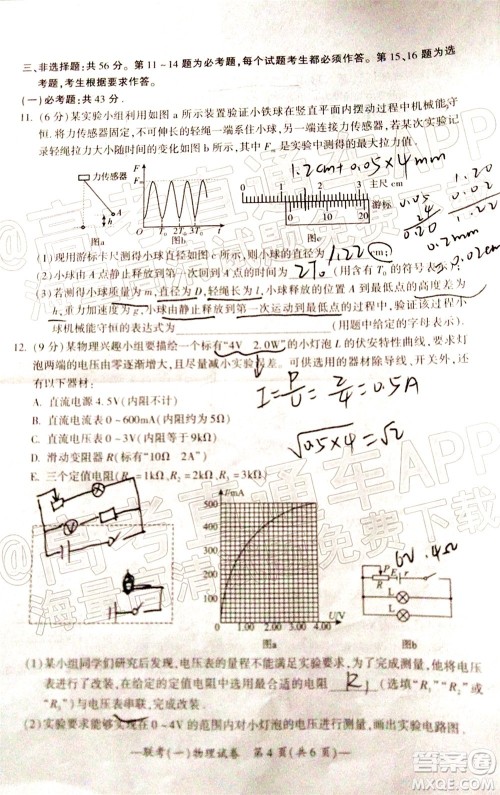 三、非选择题：共56分。第11～14题为必考题，每个试题考生都必须作答。第15、16题为选
考题，考生根据要求作答。
(一)必考题：共43分。
11. (6分)某实验小组利用如图a所示装置验证小铁球在竖直平面内摆动过程中机械能守
恒。将力传感器固定，不可伸长的轻绳一端系住小球，另一端连接力传感器，某次实验记
录轻绳拉力大小随时间的变化如图b所示，其中Fm是实验中测得的最大拉力值。
1.2cm+0.05×4mm
力传感器
A
h
图a
F
Fm
O
T0 2T0 3T0
t
图b
主尺 cm
游标
图c
0.05
0.20
1.20
1.22
0.2mm
=0.02cm
(1)现用游标卡尺测得小球直径如图c所示，则小球的直径为 1.22 cm。
(2)小球由A点静止释放到第一次回到A点的时间为 2T0 (用含有T0的符号表示)。
(3)若测得小球质量为m，直径为D，轻绳长为l，小球释放的位置到最低点的高度差为
h，重力加速度为g，小球由静止释放到第一次运动到最低点的过程中，验证该过程小
球机械能守恒的表达式为 (用题中给定的字母表示)。
12. (9分)某物理兴趣小组要描绘一个标有“4V 2.0W”的小灯泡L的伏安特性曲线，要求
灯泡两端的电压由零逐渐增大，且尽量减小实验误差。可供选用的器材除导线、开关外，还
有以下器材：
I=P/U=2/4=0.5A
A. 直流电源4.5V(内阻不计)
B. 直流电流表0～600mA(内阻约为5Ω)
C. 直流电压表0～3V(内阻等于9kΩ)
D. 滑动变阻器R(标有“10Ω 2A”)
E. 三个定值电阻(R1=1kΩ,R2=2kΩ,R3=3kΩ)
√0.5×4=√2
I/mA
500
400
300
200
100
0
1.00 2.00 3.00 4.00
U/V
图a
6V 4Ω
P
E r
R
L
L
图b
(1)某小组同学们研究后发现，电压表的量程不能满足实验要求，为了完成测量，他们将电压
表进行了改装，在给定的定值电阻中选用最合适的电阻 R1 (选填“R1”“R2”或
“R3”)与电压表串联，完成改装。
(2)实验要求能够实现在0～4V的范围内对小灯泡的电压进行测量，画出实验电路图。
—联考(一)物理试卷 第4页(共6页)—